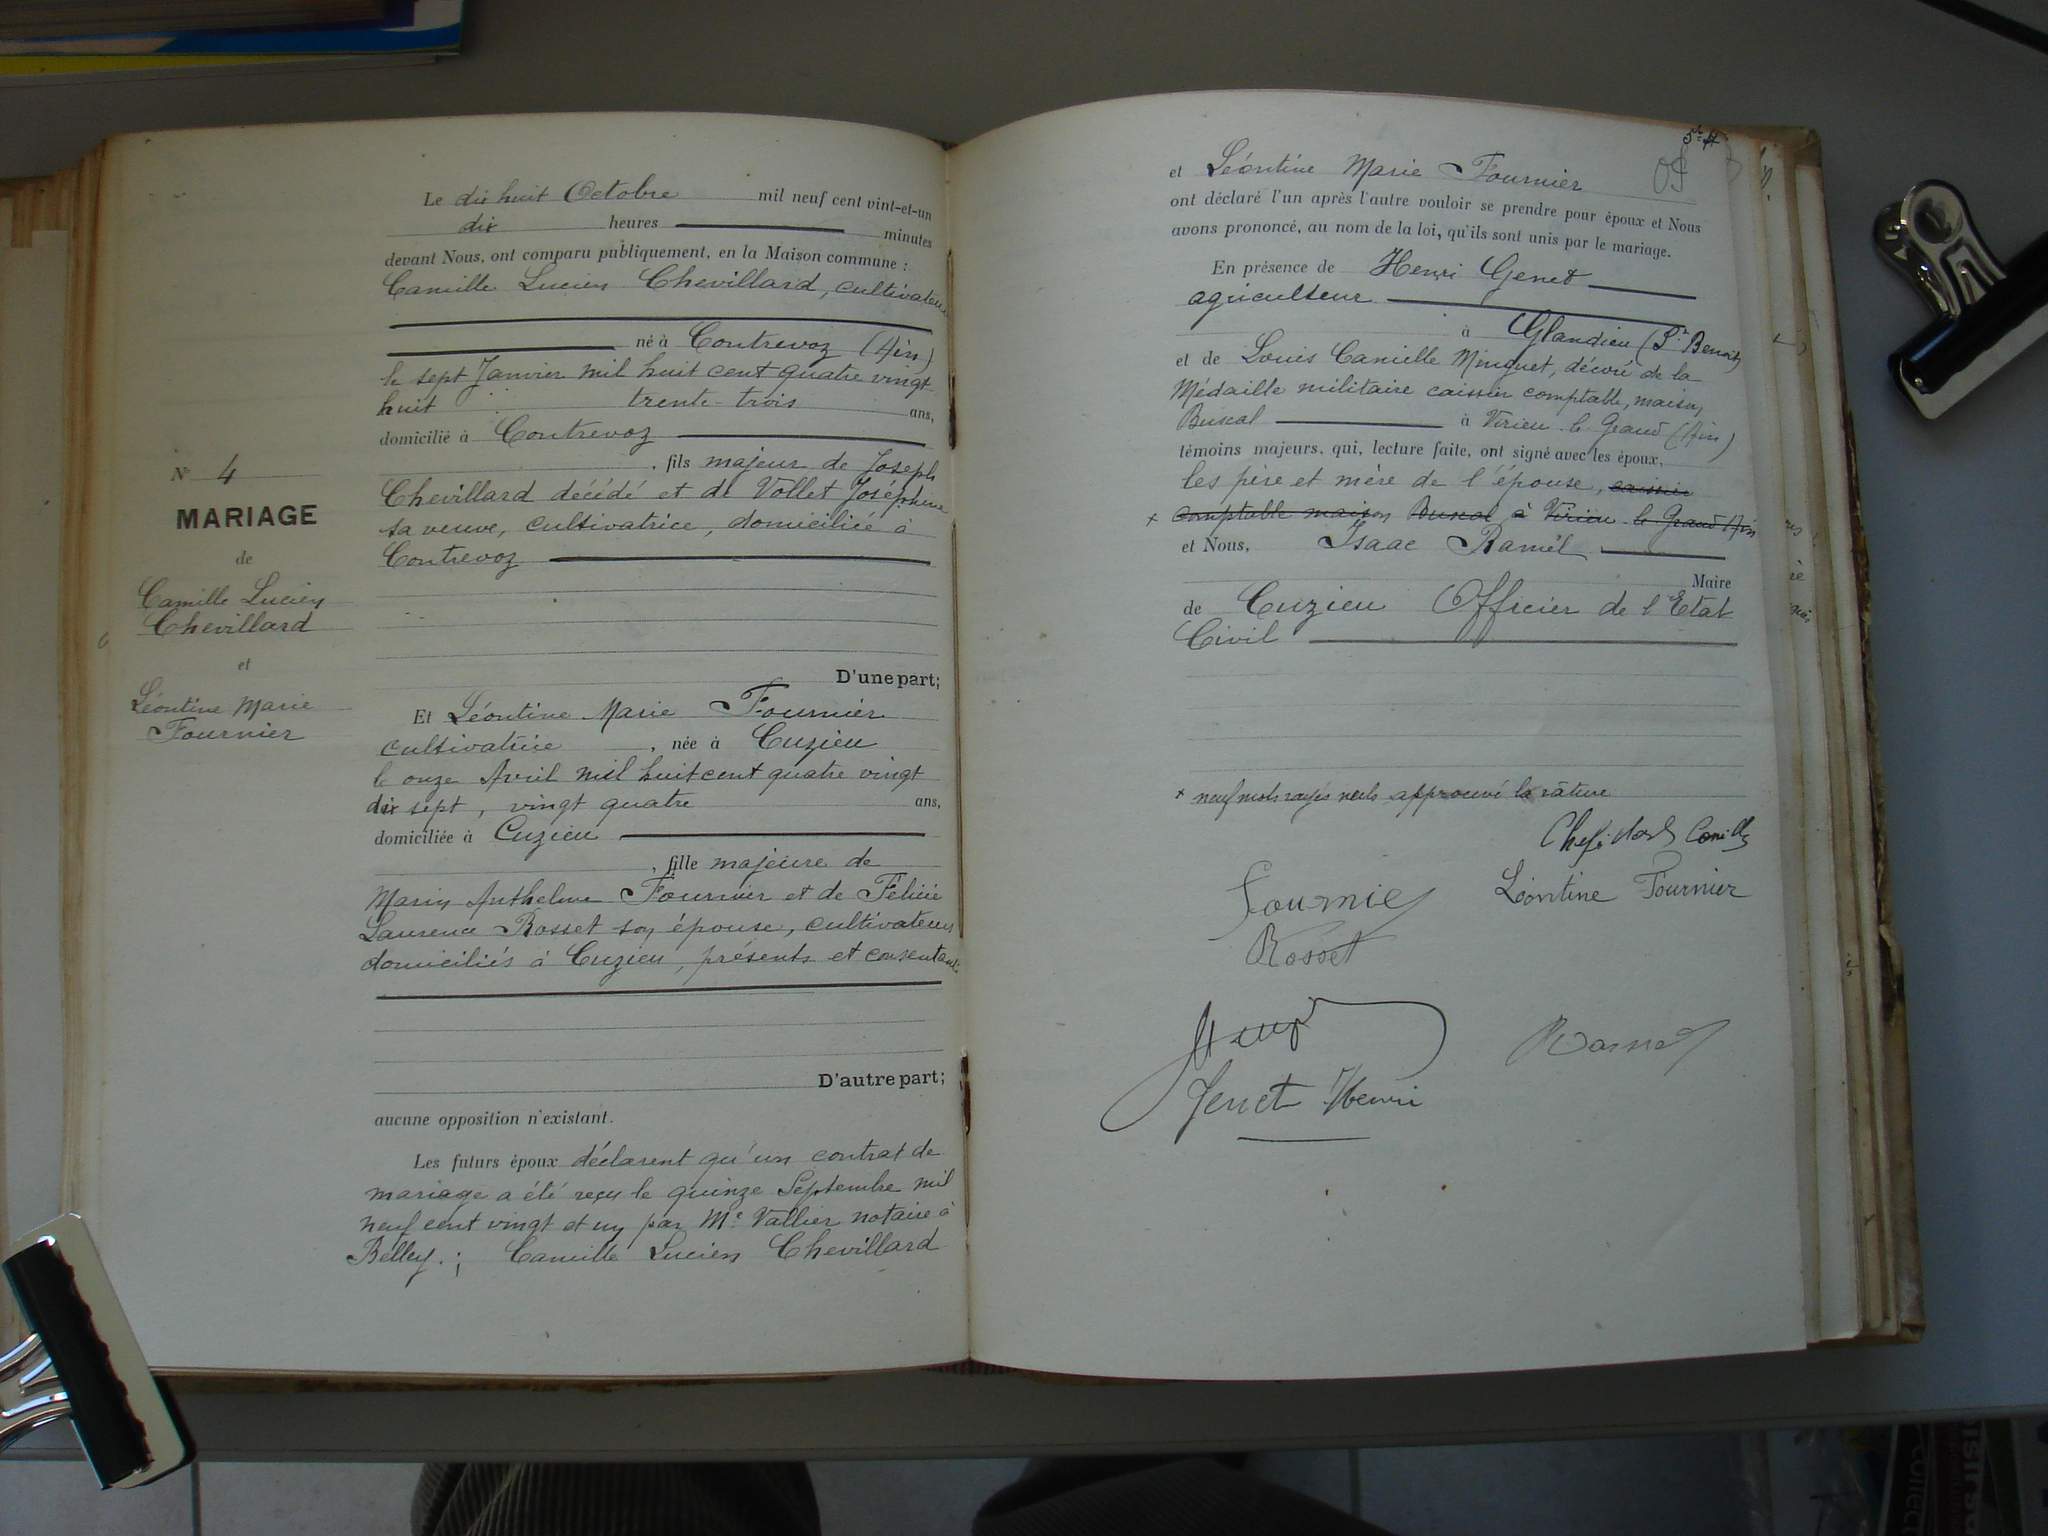 N° 4
MARIAGE
de
Camille Lucien
Chevillard
et
Léontine Marie
Fournier
Le dix huit Octobre mil neuf cent vint-et-un
dix heures minutes
devant Nous, ont comparu publiquement, en la Maison commune :
Camille Lucien Chevillard, cultivateur
né à Contrevoz (Ain)
le sept Janvier mil huit cent quatre vingt
huit trente-trois ans,
domicilié à Contrevoz
, fils majeur de Joseph
Chevillard décédé et de Vollet Joséphine
sa veuve, cultivatrice, domiciliée à
Contrevoz
D'une part;
Et Léontine Marie Fournier
cultivatrice , née à Cuzieu
le onze Avril mil huit cent quatre vingt
dix sept, vingt quatre ans,
domiciliée à Cuzieu
, fille majeure de
Marin Anthelme Fournier et de Félicie
Laurence Rosset son épouse, cultivateurs
domiciliés à Cuzieu, présents et consentants
D'autre part;
aucune opposition n'existant.
Les futurs époux déclarent qu'un contrat de
mariage a été reçu le quinze Septembre mil
neuf cent vingt et un par Me Vallier notaire à
Belley. ; Camille Lucien Chevillard
et Léontine Marie Fournier
ont déclaré l'un après l'autre vouloir se prendre pour époux et Nous
avons prononcé, au nom de la loi, qu'ils sont unis par le mariage.
En présence de Henri Genet
agriculteur
à Glandieu (St Benoit)
et de Louis Camille , décoré de la
Médaille militaire caissier comptable, maison
à Virieu le Grand (Ain)
témoins majeurs, qui, lecture faite, ont signé avec les époux,
les père et mère de l'épouse, caissier
x comptable maison à Virieu le Grand Ain
et Nous, Isaac Ramel
Maire
de Cuzieu Officier de l'Etat
Civil
x neuf mots rayés nuls approuvé la râture
Léontine Fournier
Fournier
Rosset
Genet Henri